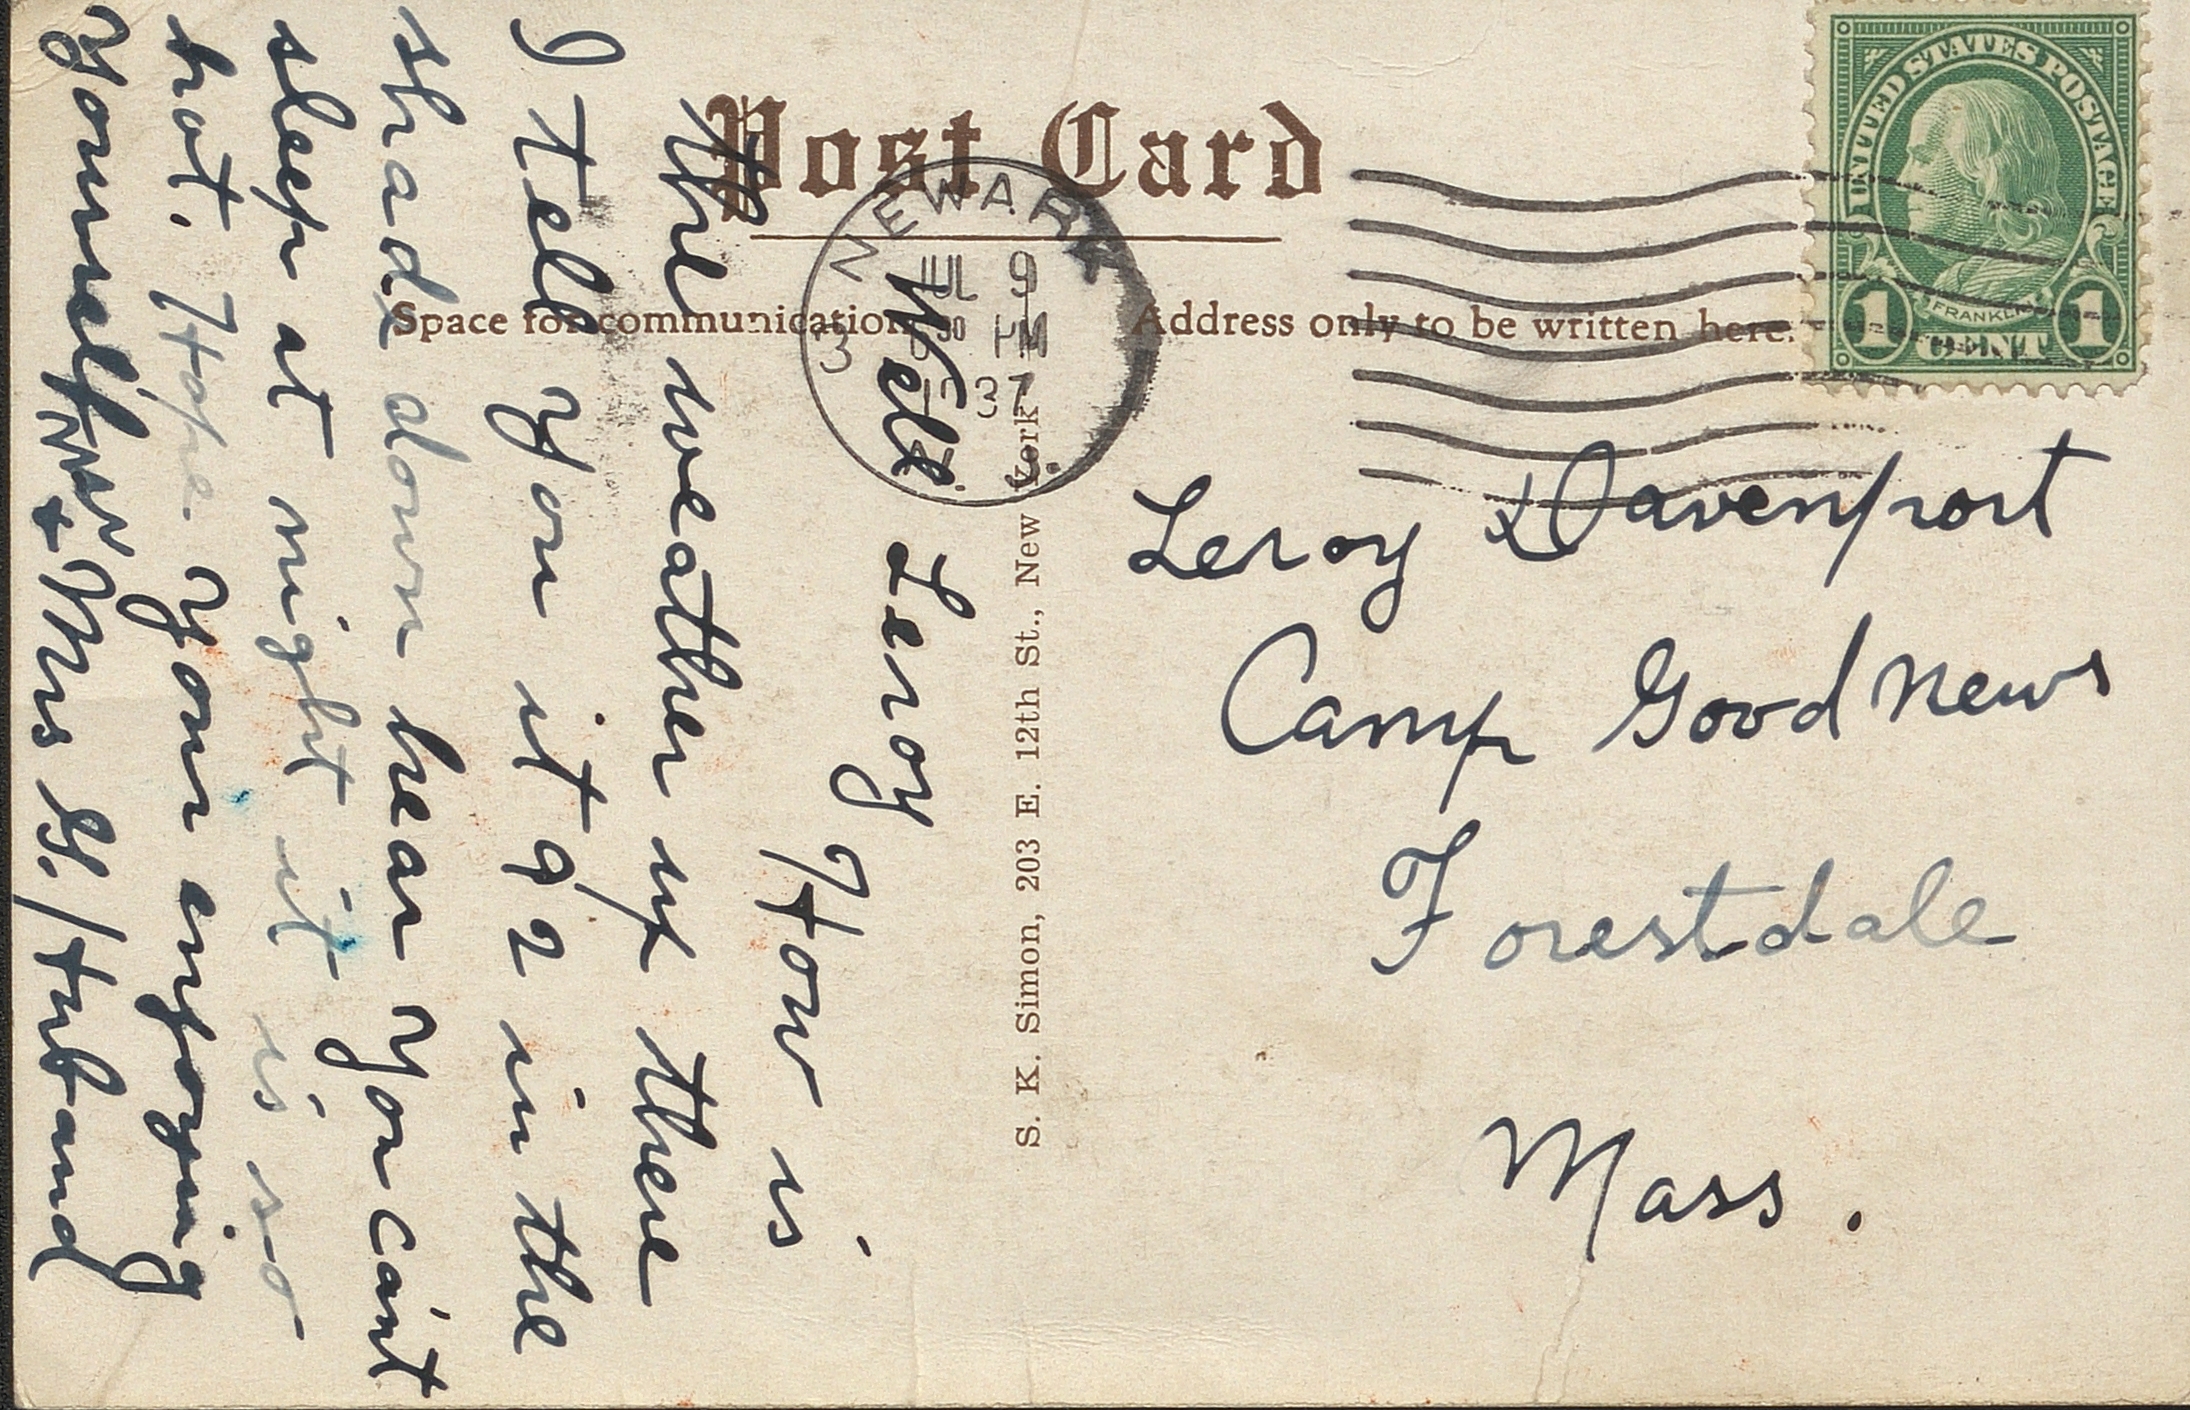 Post Card
Space for communication
Address only to be written here.
NEWARK
JUL 9
30 PM
1937
3
N.J.
UNITED STATES POSTAGE
FRANKLIN
1 CENT 1
S. K. Simon, 203 E. 12th St., New York
Well Leroy
How is
the weather up there
I tell you it 92 in the
shade down hear you can't
sleep at night it is so
hot. Hope your enjoying
yourself
+ Mrs
Leroy Davenport
Camp Good News
Forestdale
Mass.